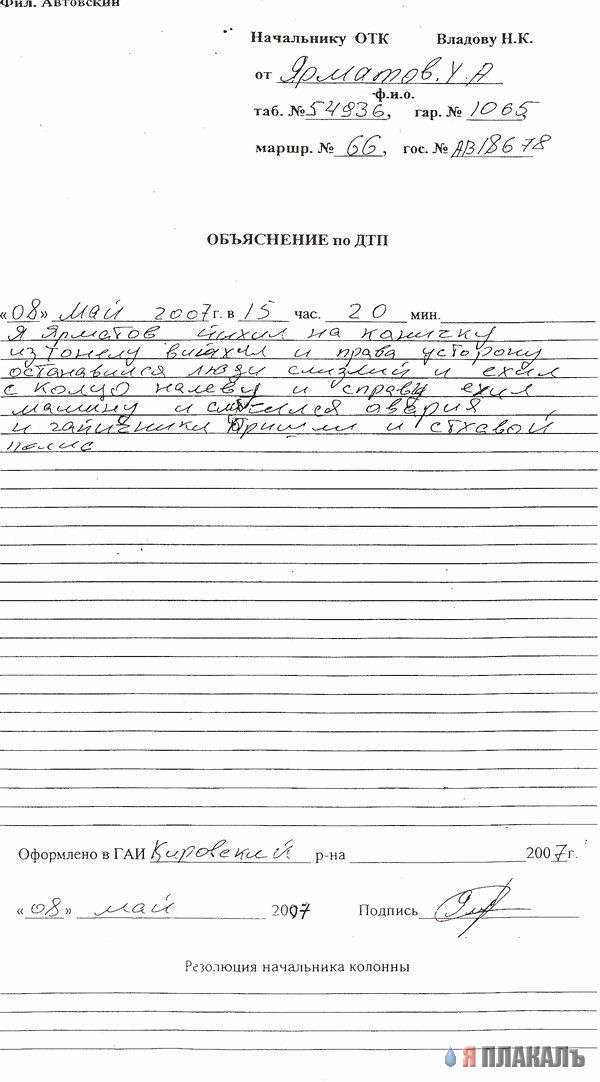 Фил. Автовский
Начальнику ОТК Владову Н.К.
от Ярматов.У.А
ф.и.о.
таб. № 54936, гар. № 1065
маршр. № 66, гос. № АВ18678
ОБЪЯСНЕНИЕ по ДТП
«08» май 2007г. в 15 час. 20 мин.
Я Ярматов йихил на каничку
из тонелу виихил и права усторону
останавылся люди слизлий и ехил
с колцо налеву и справы ехил
машину и случился авария,
и гаишники пришли и стхавой
полис
Оформлено в ГАИ Кировский р-на 2007г.
«08» май 2007 Подпись
Резолюция начальника колонны
Я ПЛАКАЛЪ